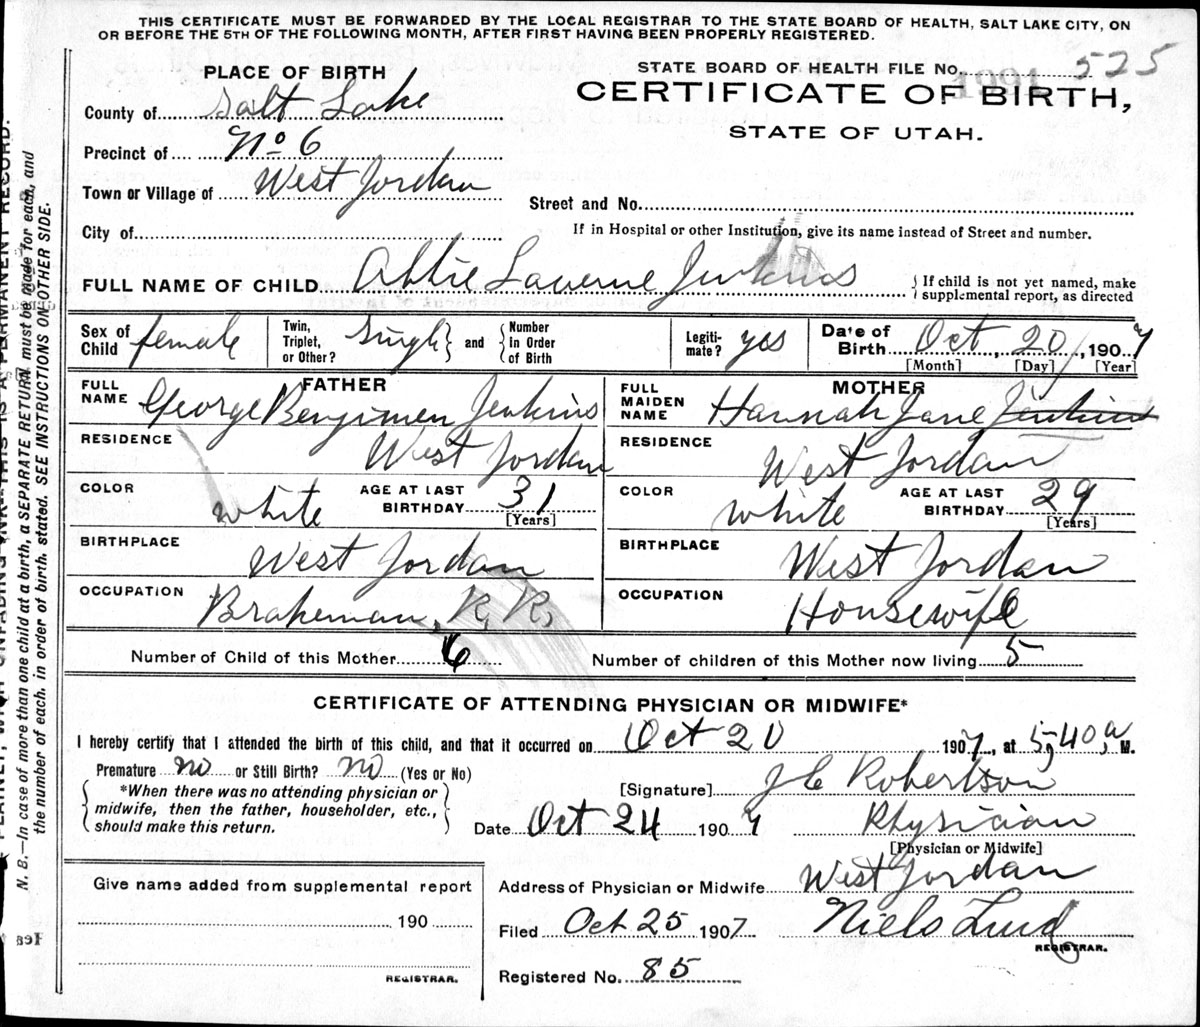 THIS CERTIFICATE MUST BE FORWARDED BY THE LOCAL REGISTRAR TO THE STATE BOARD OF HEALTH, SALT LAKE CITY, ON
OR BEFORE THE 5TH OF THE FOLLOWING MONTH, AFTER FIRST HAVING BEEN PROPERLY REGISTERED.
STATE BOARD OF HEALTH FILE No. 525
CERTIFICATE OF BIRTH,
STATE OF UTAH.
PLACE OF BIRTH
County of Salt Lake
Precinct of No 6
Town or Village of West Jordan
Street and No.
City of
If in Hospital or other Institution, give its name instead of Street and number.
FULL NAME OF CHILD Laverne Jenkins
{ If child is not yet named, make supplemental report, as directed
Sex of Child female
Twin, Triplet, or Other? Single } and { Number in Order of Birth
Legitimate? yes
Date of Birth Oct, 20, 1907
[Month] [Day] [Year]
FATHER
FULL NAME George Benjimen Jenkins
RESIDENCE West Jordan
COLOR white AGE AT LAST BIRTHDAY 31 [Years]
BIRTHPLACE West Jordan
OCCUPATION Brakeman, R. R.
MOTHER
FULL MAIDEN NAME Hannah Jane Jenkins
RESIDENCE West Jordan
COLOR white AGE AT LAST BIRTHDAY 29 [Years]
BIRTHPLACE West Jordan
OCCUPATION Housewife
Number of Child of this Mother 6 Number of children of this Mother now living 5
CERTIFICATE OF ATTENDING PHYSICIAN OR MIDWIFE*
I hereby certify that I attended the birth of this child, and that it occurred on Oct 20 1907, at 5,40, a M.
Premature no or Still Birth? no (Yes or No)
{ *When there was no attending physician or midwife, then the father, householder, etc., should make this return. }
[Signature] J C Robertson
Date Oct 24 1907 Physician
[Physician or Midwife]
Address of Physician or Midwife West Jordan
Filed Oct 25 1907 Niels Lind
REGISTRAR.
Registered No. 85
Give name added from supplemental report
190
REGISTRAR.
N. B.—In case of more than one child at a birth, a SEPARATE RETURN must be made for each, and
the number of each, in order of birth, stated. SEE INSTRUCTIONS ON OTHER SIDE.
THIS IS A PERMANENT RECORD.